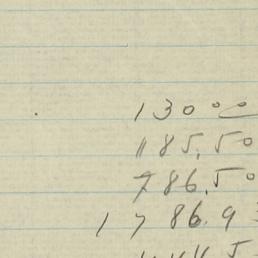 130 00
185.50
786.50
1786.9